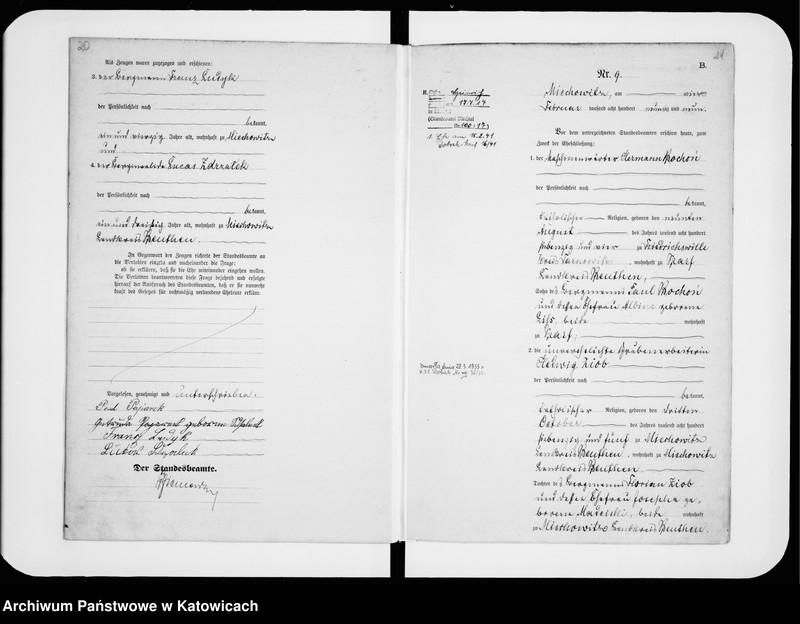 20
Als Zeugen waren zugezogen und erschienen:
3. der Bergmann Franz Ludyk
der Persönlichkeit nach
bekannt,
ein und vierzig Jahre alt, wohnhaft zu Miechowitz
und
4. der Berginvalide Lucas Zdrzalek
der Persönlichkeit nach
bekannt,
ein und dreißig Jahre alt, wohnhaft zu Miechowitz
Landkreis Beuthen.
In Gegenwart der Zeugen richtete der Standesbeamte an
die Verlobten einzeln und nacheinander die Frage:
ob sie erklären, daß sie die Ehe miteinander eingehen wollen.
Die Verlobten beantworteten diese Frage bejahend und erfolgte
hierauf der Ausspruch des Standesbeamten, daß er sie nunmehr
kraft des Gesetzes für rechtmäßig verbundene Eheleute erkläre.
Vorgelesen, genehmigt und unterschrieben.
Paul
geborene
Franz Ludyk
Der Standesbeamte.
21
B.
Nr. 9.
Miechowitz, am vier
Februar tausend acht hundert neunzig und neun.
Vor dem unterzeichneten Standesbeamten erschien heute, zum
Zweck der Eheschließung:
1. der Maschinenwärter Hermann Mochoń
der Persönlichkeit nach
bekannt,
katholischer Religion, geboren den neunten
August des Jahres tausend acht hundert
siebenzig und vier zu Friedrichswille
Kreis Tarnowitz, wohnhaft zu Karf
Landkreis Beuthen,
Sohn des Bergmanns Paul Mochoń
und dessen Ehefrau Albine geborene
beide wohnhaft
zu Karf;
2. die unverehelichte Grubenarbeiterin
Hedwig Ziob
der Persönlichkeit nach
bekannt,
katholischer Religion, geboren den dritten
October des Jahres tausend acht hundert
siebenzig und fünf zu Miechowitz
Landkreis Beuthen, wohnhaft zu Miechowitz
Landkreis Beuthen
Tochter des Bergmanns Florian Ziob
und dessen Ehefrau Josepha ge-
borene beide wohnhaft
zu Miechowitz Landkreis Beuthen.
Archiwum Państwowe w Katowicach